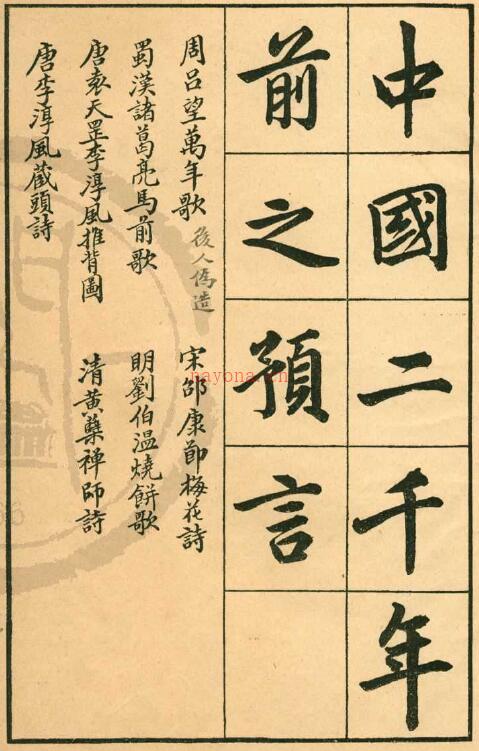 中國二千年
前之預言
周呂望萬年歌
後人偽造
宋邵康節梅花詩
蜀漢諸葛亮馬前歌
明劉伯温燒餅歌
唐袁天罡李淳風推背圖
清黃蘖禪師詩
唐李淳風藏頭詩
nayona.cn